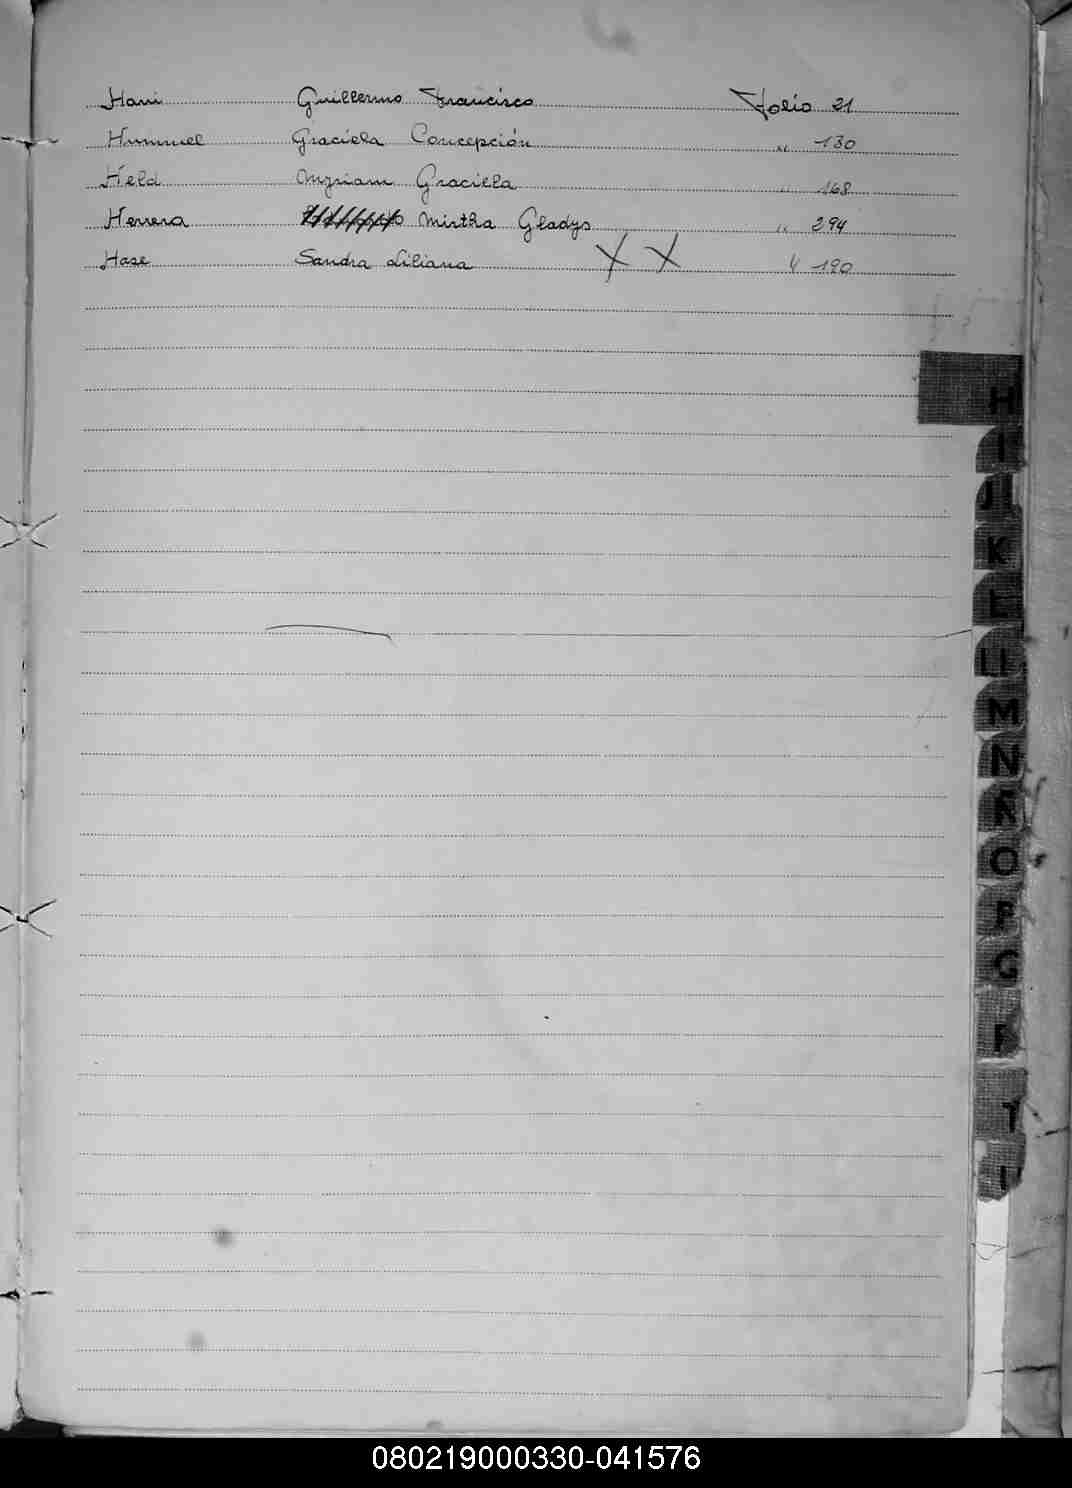 Hani Guillermo Francisco Folio 21
Hummel Graciela Concepción " 130
Held Myriam Graciela " 168
Herrera Mirtha Gladys " 294
Hase Sandra Liliana X X " 190
H
I
J
K
L
LL
M
N
Ñ
O
P
Q
R
T
U
080219000330-041576